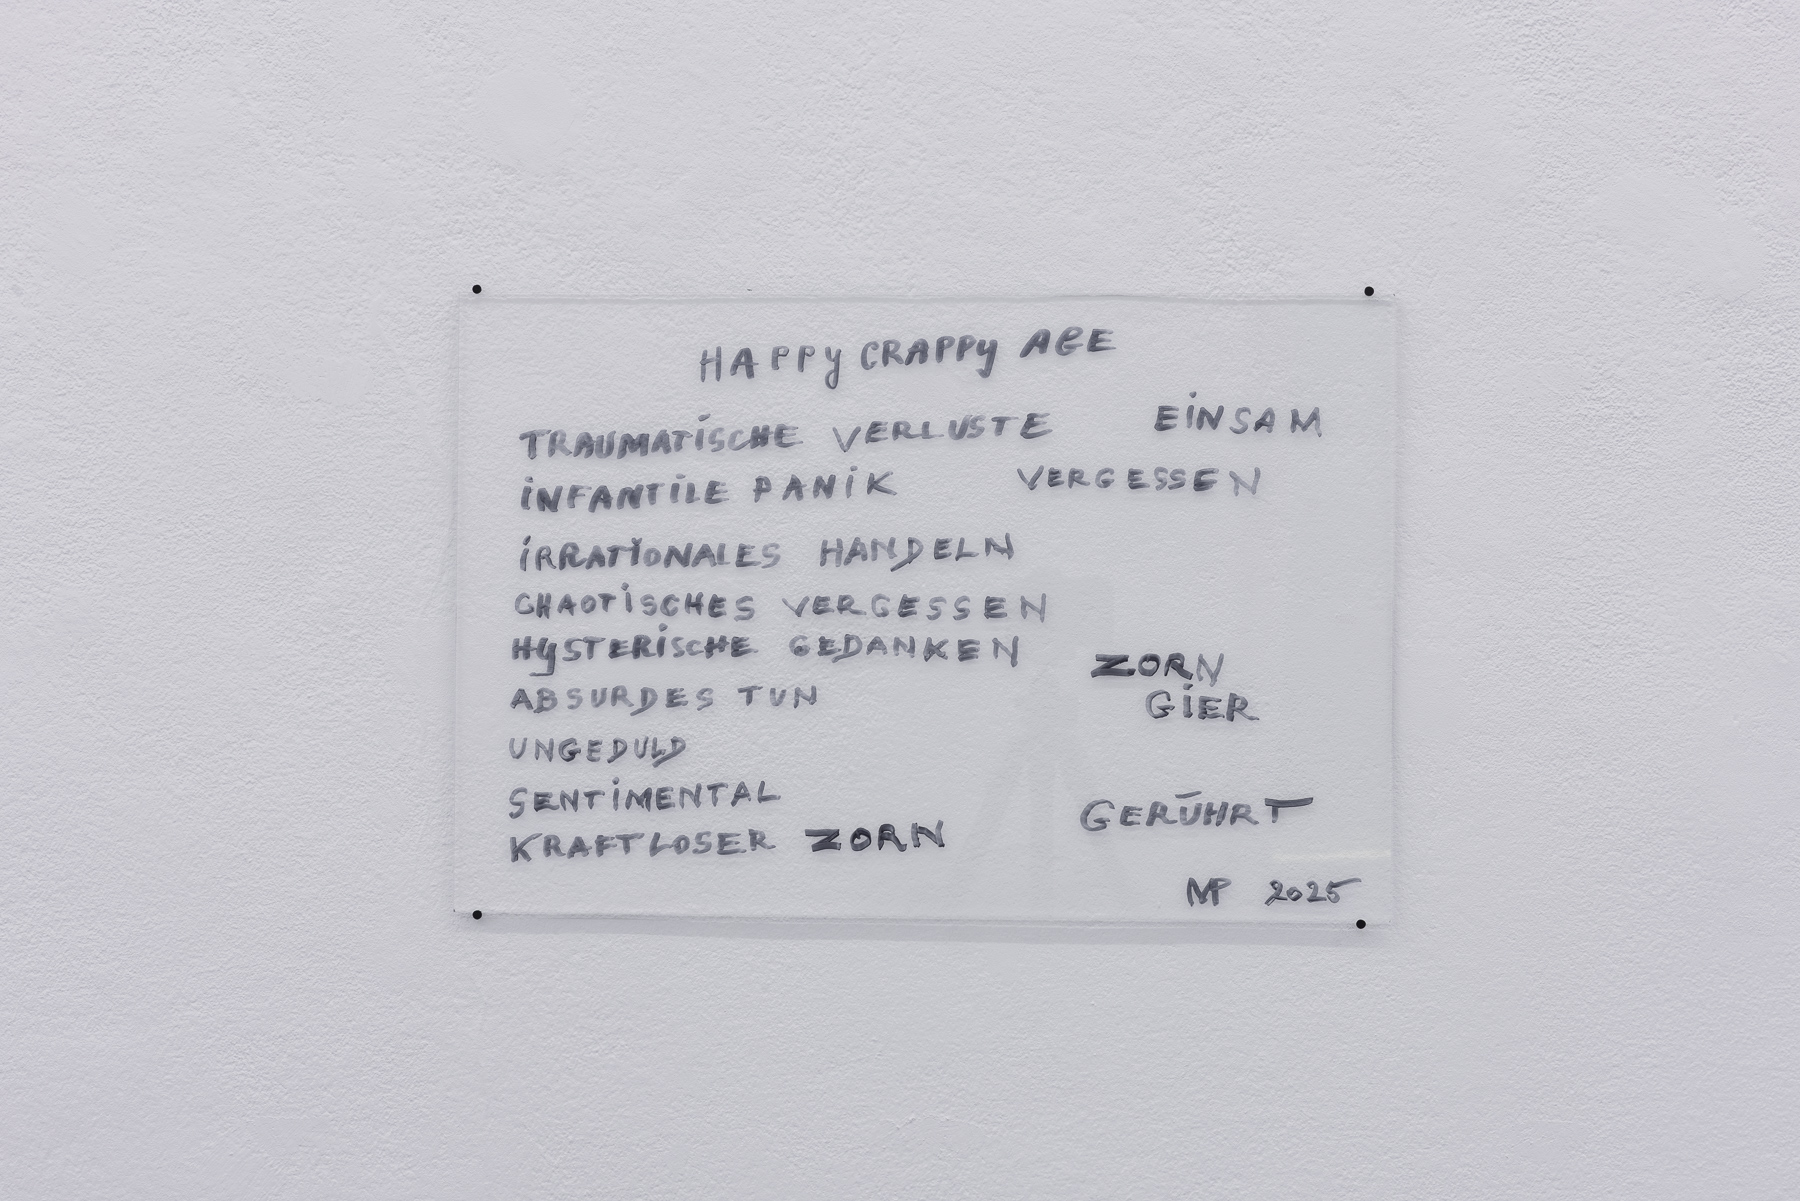 HAPPY CRAPPY AGE
TRAUMATiSCHE VERLUSTE EiNSAM
iNFANTiLE PANiK VERGESSEN
iRRATiONALES HANDELN
CHAOTiSCHES VERGESSEN
HYSTERiSCHE GEDANKEN
ZORN
ABSURDES TUN GiER
UNGEDULD
SENTiMENTAL
GERÜHRT
KRAFTLOSER ZORN
MP 2025